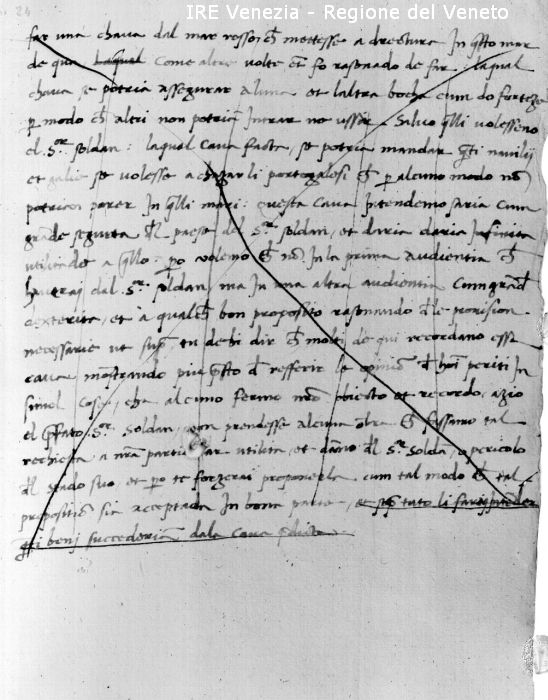 24
IRE Venezia - Regione del Veneto
far una chava dal mar rosso ch mettesse a drectura In qsto mar
de qua laqual Come altre volte etm fo rasonado de far : laqual
chava se potria assegurar a luna et laltra bocha cum do forteze
p modo ch altri non potria Intrar ne ussir. Salvo qlli volesseno
el S.or Soldan : laqual Cava facta, se potria mandar qti navilij
et galie se volesse a chazar li portogalesi ch p alcuno modo no
potrian parer In qlli mari : questa Cava Intendemo saria Cum
grade segurta dl paese del S.or soldan, et daria Infinita
utilitade a qllo : po volemo ch no In la prima audientia ch
haverai dal S.or soldan, ma In una altra audientia Cum grad
dexterita, et a qualch bon proposito rasonando dle provision
necessarie ut supra, tu debi dir ch molti de qui recordano essa
cava mostrando piu psto d refferir le opinio d hoi periti In
simel Cosa, che alcuno fermo nro obiecto et recordo, azio
el pfato S.or Soldan non prendesse alcuna obra ch fessamo tal
rechiesta a nra particular utilita, et dano dl S.or Soldan, o pericolo
dl stado suo et po te sforzerai proponerla cum tal modo ch tal
propositio sia acceptada In bona parte, et sop tuto li farai intender
qti beni succederian dala Cava pdicta